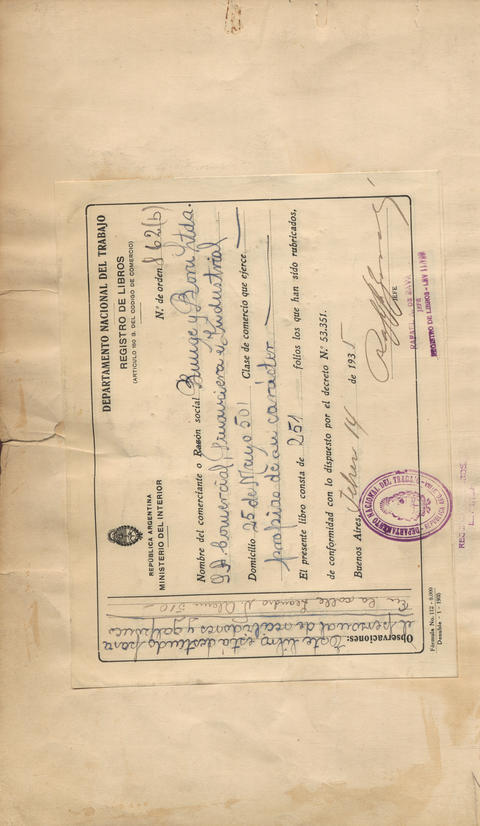 REPÚBLICA ARGENTINA
MINISTERIO DEL INTERIOR
DEPARTAMENTO NACIONAL DEL TRABAJO
REGISTRO DE LIBROS
(ARTICULO 160 B. DEL CODIGO DE COMERCIO)
N.º de orden 862(b)
Nombre del comerciante o Razón social Bunge y Born Ltda.
S.A. Comercial, Financiera e Industrial
Domicilio 25 de Mayo 501 Clase de comercio que ejerce
propias de su carácter
El presente libro consta de 251 folios los que han sido rubricados,
de conformidad con lo dispuesto por el decreto N.º 53.351.
Buenos Aires, Febr 14 de 1935
JEFE
RAFAEL DE
JEFE
REGISTRO DE LIBROS - LEY 11.
DEPARTAMENTO NACIONAL DEL TRABAJO
REPUBLICA
Observaciones: Este libro esta destinado para
el personal de
En la calle Leandro N. Alem 510
Fórmula No. 112 - 8.000
- 1 - 935